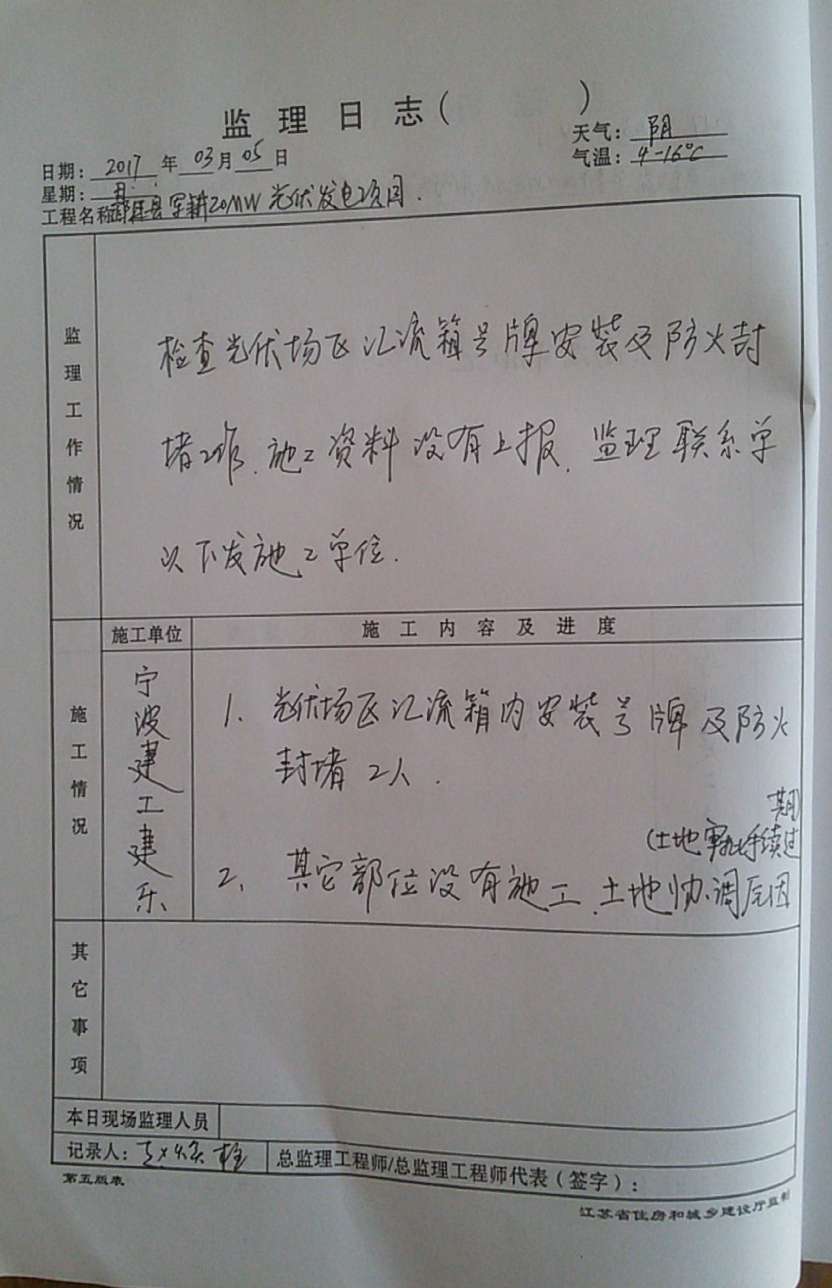 监理日志( )
天气: 阴
日期: 2017 年 03 月 05 日
气温: 4-16℃
星期: 日
工程名称 盱眙县军耕20MW光伏发电项目.
监理工作情况
检查光伏场区汇流箱号牌安装及防火封
堵工作.施工资料没有上报.监理联系单
以下发施工单位.
施工情况
施工单位
施工内容及进度
宁波建工建乐
1. 光伏场区汇流箱内安装号牌及防火
封堵2人.
期)
(土地审批手续过
2. 其它部位没有施工.土地协调原因
其它事项
本日现场监理人员
记录人:
总监理工程师/总监理工程师代表(签字):
第五版表
江苏省住房和城乡建设厅监制